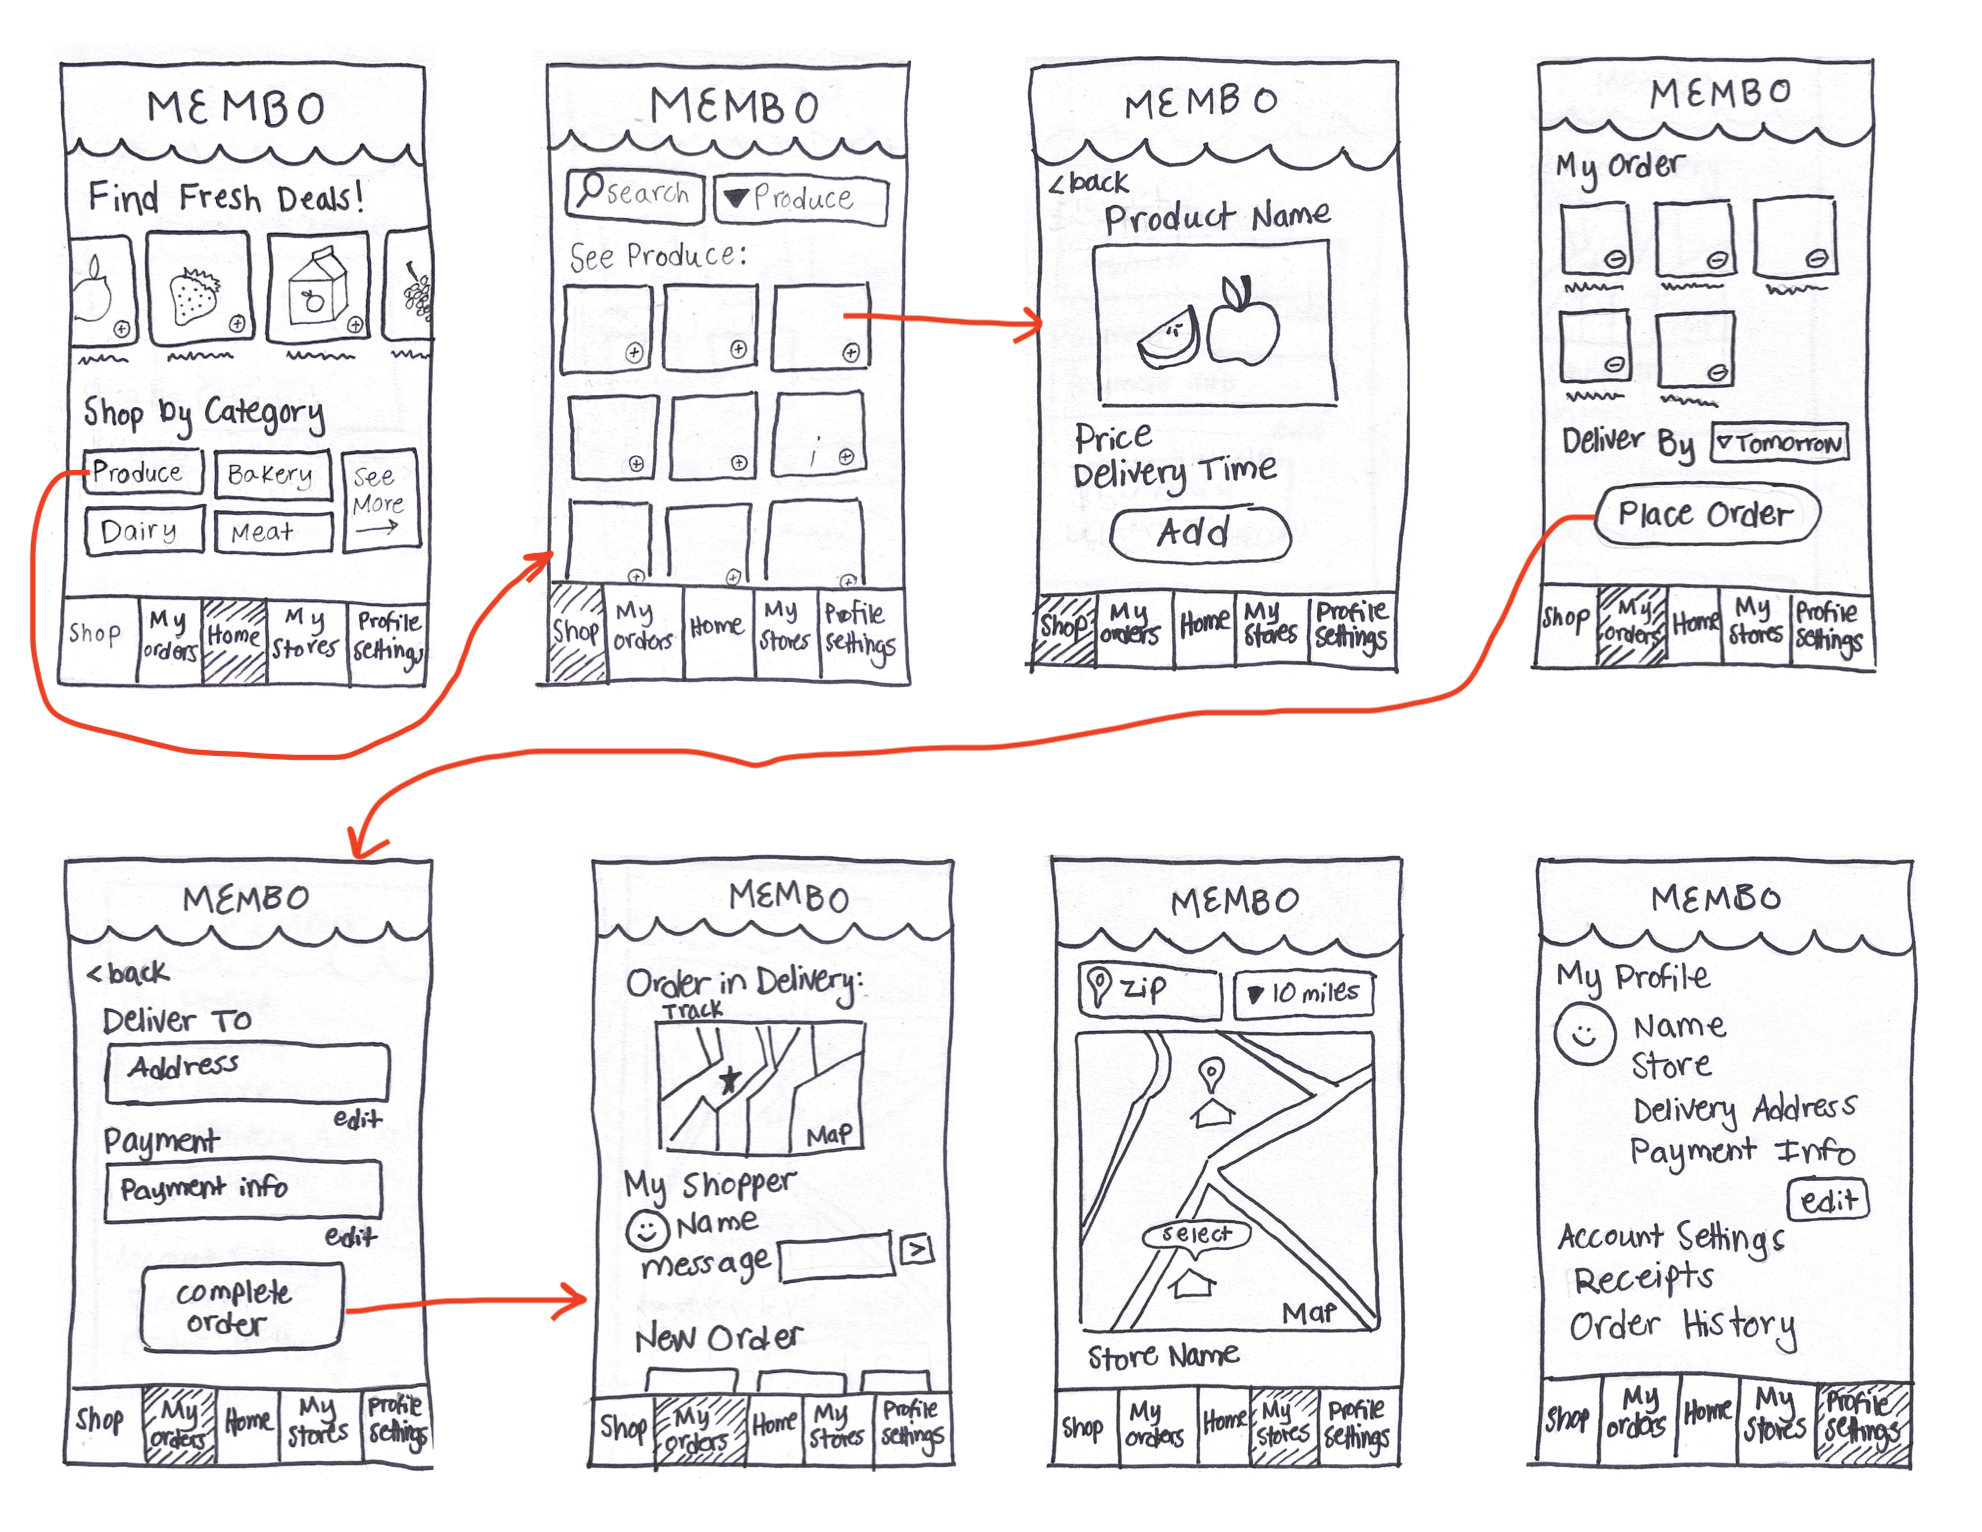 MEMBO
Find Fresh Deals!
Shop by Category
Produce
Bakery
See
More
Dairy
Meat
Shop
My
orders
Home
My
Stores
Profile
settings
MEMBO
search
Produce
See Produce:
Shop
My
orders
Home
My
Stores
Profile
settings
MEMBO
<back
Product Name
Price
Delivery Time
Add
Shop
My
orders
Home
My
Stores
Profile
settings
MEMBO
My Order
Deliver By
Tomorrow
Place Order
Shop
My
orders
Home
My
Stores
Profile
settings
MEMBO
<back
Deliver To
Address
edit
Payment
Payment info
edit
complete
order
Shop
My
orders
Home
My
Stores
Profile
settings
MEMBO
Order in Delivery:
Track
Map
My Shopper
Name
message
>
New Order
Shop
My
orders
Home
My
Stores
Profile
settings
MEMBO
zip
10 miles
select
Map
Store Name
Shop
My
orders
Home
My
Stores
Profile
settings
MEMBO
My Profile
Name
Store
Delivery Address
Payment Info
edit
Account Settings
Receipts
Order History
Shop
My
orders
Home
My
Stores
Profile
settings